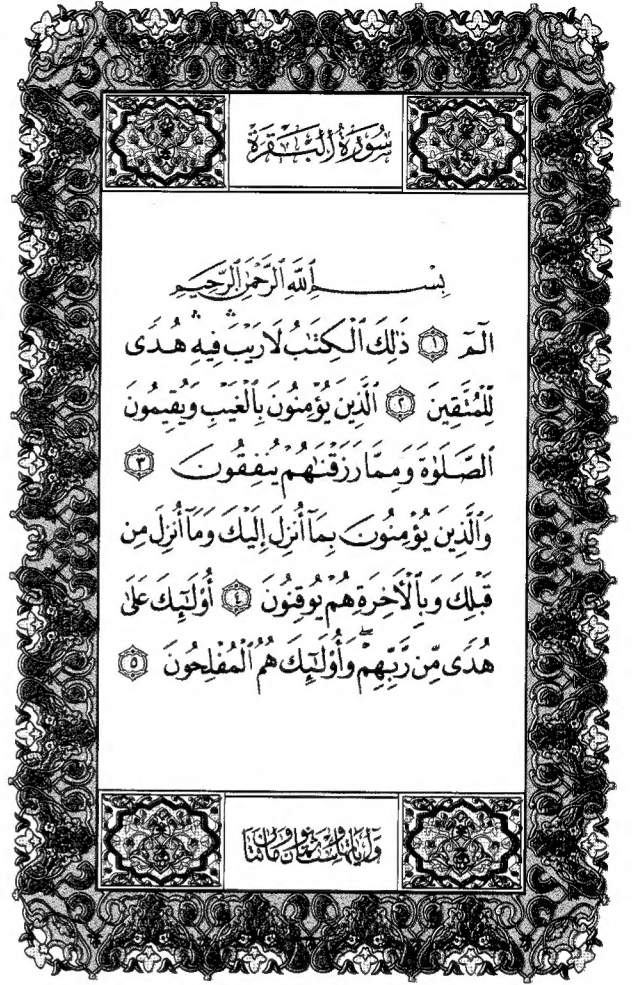 سُورَةُ الْبَقَرَةِ
بِسْمِ ٱللَّهِ ٱلرَّحْمَٰنِ ٱلرَّحِيمِ
الٓمٓ ۝١ ذَٰلِكَ ٱلْكِتَٰبُ لَا رَيْبَ ۛ فِيهِ ۛ هُدًى
لِّلْمُتَّقِينَ ۝٢ ٱلَّذِينَ يُؤْمِنُونَ بِٱلْغَيْبِ وَيُقِيمُونَ
ٱلصَّلَوٰةَ وَمِمَّا رَزَقْنَٰهُمْ يُنفِقُونَ ۝٣
وَٱلَّذِينَ يُؤْمِنُونَ بِمَآ أُنزِلَ إِلَيْكَ وَمَآ أُنزِلَ مِن
قَبْلِكَ وَبِٱلْأَخِرَةِ هُمْ يُوقِنُونَ ۝٤ أُوْلَٰٓئِكَ عَلَىٰ
هُدًى مِّن رَّبِّهِمْ ۖ وَأُوْلَٰٓئِكَ هُمُ ٱلْمُفْلِحُونَ ۝٥
وآياتها ست وثمانون ومائتان